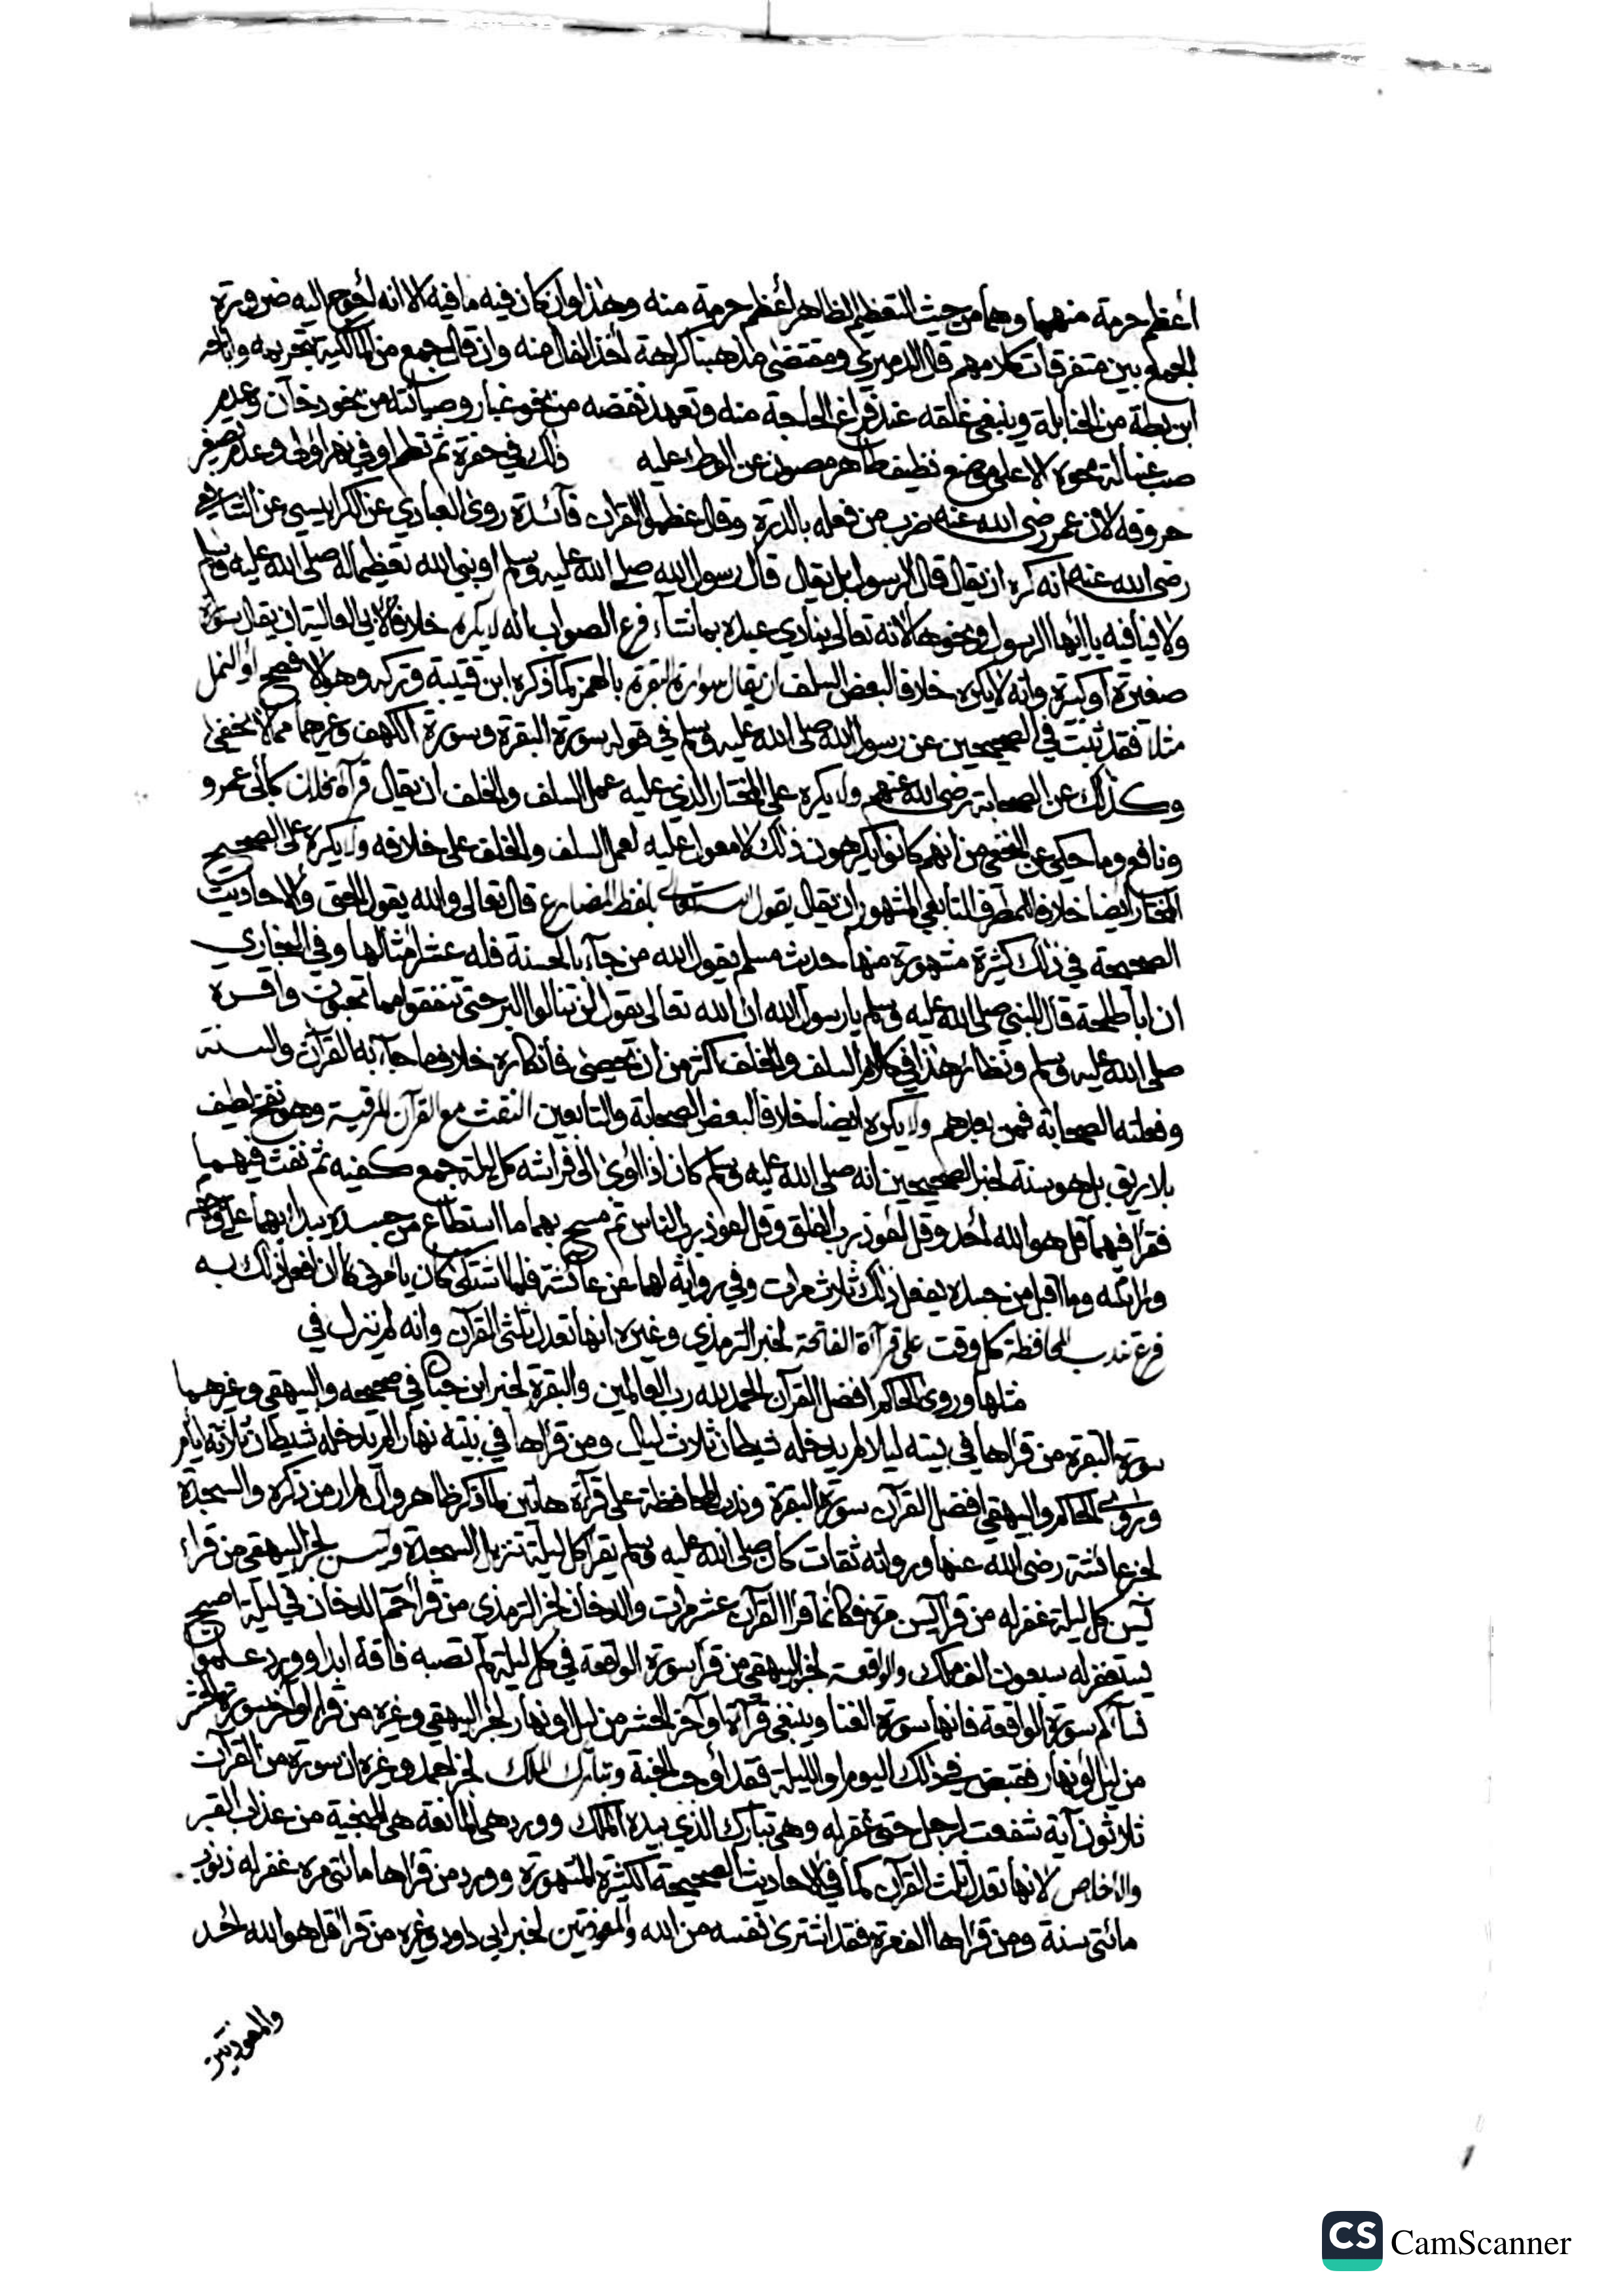 أعظم حرمة منهما وهما من حيث التعظيم الظاهر أعظم حرمة منه وهذا وان كان فيه ما فيه الا انه أحوج اليه ضرورة
الجمع بين متفرقات كلامهم قال الدميري ومقتضى مذهبنا كراهة أخذ الفال منه وان قال جمع من المالكية بتحريمه وإباحه
ابن بطة من الحنابلة وينبغي غلقه عند فراغ الحاجة منه وتعهد نفضه من نحو غبار وصيانته من نحو دخان وعدم
صب غسالة محوه الا على موضع نظيف طاهر مصون عن الوطء عليه ذلك في حفرة ثم تطم او في نهر أولى وعدم تصغير
حروفه لان عمر رضى الله عنه ضرب من فعله بالدرة وقال عظموا القران فآئدة روى العبادي عن الكرابيسي عن الشافعي
رضى الله عنه انه كره ان يقال قال الرسول بل يقال قال رسول الله صلى الله عليه وسلم او نبى الله تعظيما له صلى الله عليه وسلم
ولا ينافيه يا أيها الرسول ونحوها لانه تعالى ينادي عبده بما شآء فرع الصواب انه لا يكره خلافا لابى العالية ان يقال سورة
صغيرة أو كبيرة وانه لا يكره خلافا لبعض السلف ان يقال سوارة البقرة بالهمز كما ذكره ابن قتيبة وتركه وهو الافصح أو النمل
مثلا فقد ثبت في الصحيحين عن رسول الله صلى الله عليه وسلم في قوله سورة البقرة وسورة الكهف وغيرهما مما لا يخفى
وكذلك عن الصحابة رضى الله عنهم ولا يكره على المختار الذي عليه عمل السلف والخلف ان يقال قرآة فلان كأبى عمرو
ونافع وما حكى عن النخعي من انهم كانوا يكرهون ذلك لا معول عليه لعمل السلف والخلف على خلافه ولا يكره على الصحيح
المختار أيضا خلافا لمطرف التابعي المشهور ان يقال يقول الله تعالى بلفظ المضارع قال تعالى والله يقول الحق والاحاديث
الصحيحة في ذلك كثيرة مشهورة منها حديث مسلم يقول الله من جآء بالحسنة فله عشر أمثالها وفي البخاري
ان أبا طلحة قال للنبي صلى الله عليه وسلم يا رسول الله ان الله تعالى يقول لن تنالوا البر حتى تنفقوا مما تحبون واقره
صلى الله عليه وسلم ونظائر هذا في كلام السلف والخلف اكثر من ان تحصى فانكاره خلاف ما جآء به القرآن والسنة
وفعلته الصحابة فمن بعدهم ولا يكره ايضا خلافا لبعض الصحابة والتابعين النفث مع القرآن للرقية وهو نفخ لطيف
بلا ريق بل هو سنة لخبر الصحيحين انه صلى الله عليه وسلم كان اذا أوى الى فراشه كل ليلة جمع كفيه ثم نفث فيهما
فقرأ فيهما قل هو الله أحد وقل أعوذ برب الفلق وقل اعوذ برب الناس ثم مسح بهما ما استطاع من جسده يبدأ بهما على وجهه
ورأسه وما اقبل من جسده يفعل ذلك ثلاث مرات وفي رواية لهما عن عائشة فلما اشتكى كان يأمرنى كان ان افعل ذلك به
فرع تندب المحافظة كل وقت على قرآة الفاتحة لخبر الترمذي وغيره انها تعدل ثلثى القرآن وانه لم ينزل في
مثلها وروى الحاكم افضل القرآن الحمد لله رب العالمين والبقرة لخبر ابن حبان في صحيحه والبيهقي وغيرهما
سورة البقرة من قرأها في بيته ليلا لم يدخله شيطان ثلاث ليال ومن قرأها في بيته نهارا لم يدخله شيطان ثلاثة أيام
وروى الحاكم والبيهقي افضل القرآن سورة البقرة وندب المحافظة على قرآة هاتين كما ذكر ظاهر وان لم أر من ذكره والسجدة
لخبر عائشة رضى الله عنها ورواته ثقات كان صلى الله عليه وسلم يقرأ كل ليلة تنزيل السجدة ويس لخبر البيهقي من قراء
يس كل ليلة غفر له من قرأ يس مرة فكانما قرا القرآن عشر مرات والدخان لخبر الترمذي من قرأ حم الدخان في ليلة اصبح
يستغفر له سبعون الف ملك والواقعة لخبر البيهقي من قرأ سورة الواقعة في كل ليلة لم تصبه فاقة ابدا وورد علموا
نسآكم سورة الواقعة فانها سورة الغنا وينبغى قرآة أواخر الحشر من ليل او نهار لخبر البيهقي وغيره من قرأ أواخر سورة الحشر
من ليل أو نهار فقبض في ذلك اليوم او الليلة فقد أوجب الجنة وتبارك الملك لخبر احمد وغيره ان سورة من القرآن
ثلاثون آية شفعت لرجل حتى غفر له وهي تبارك الذي بيده الملك وورد هي المانعة هي المنجية من عذاب القبر
والاخلاص لانها تعدل ثلث القرآن كما في الاحاديث الصحيحة الكثيرة المشهورة وورد من قرأها مائتى مرة غفر له ذنوب
مائتى سنة ومن قرأها الف مرة فقد اشترى نفسه من الله والمعوذتين لخبر ابي داود وغيره من قرا قل هو الله أحد
والمعوذتين
CS CamScanner